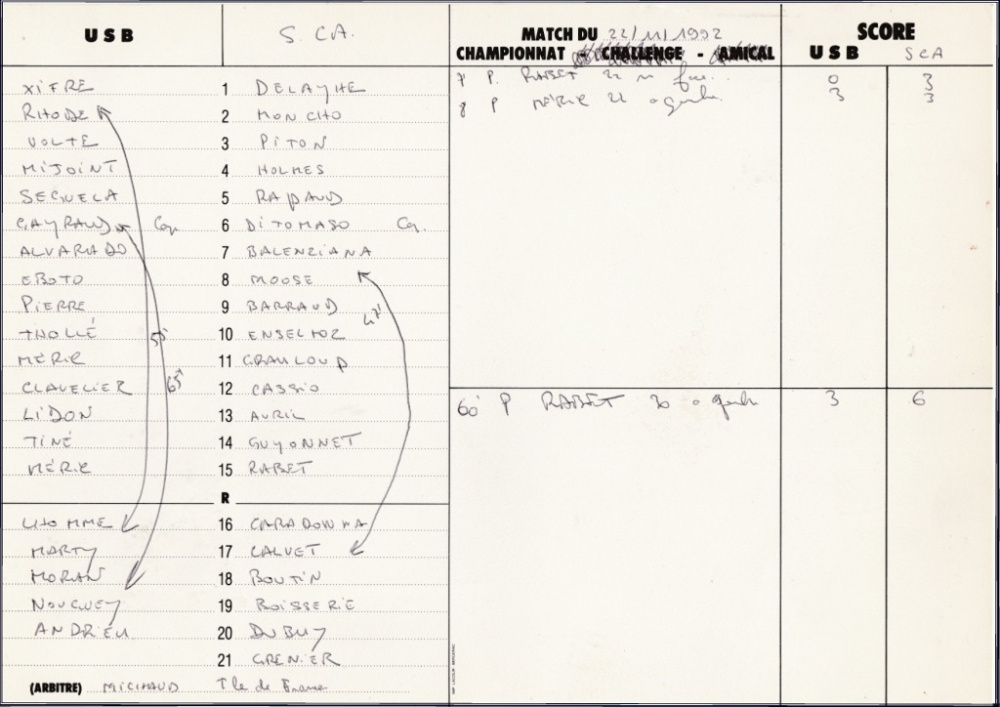 USB S. CA. MATCH DU 22/11/1992 SCORE
CHAMPIONNAT - CHALLENGE - AMICAL USB SCA
XIFRE 1 DELAYHE
RHODE 2 MONCHO
VOLTE 3 PITON
MIJOINT 4 HOLMES
SECHELA 5 RAPAUD
GAYRAUD Cap. 6 DITOMASO Cap.
ALVARADO 7 BALENZIANA
EBOTO 8 MOOSE
PIERRE 9 BARRAUD
THOLLÉ 10 ENSELTOZ
MÉRIC 11 GRANLOUP
CLAVELIER 12 CASSIO
LIDON 13 AVRIL
TINÉ 14 GUYONNET
MÉRIC 15 RABET
55' 65' 47'
R
LHOMME 16 CARADONNA
MARTY 17 CALVET
MORAN 18 BOUTIN
NOUGUEY 19 BOISSERIE
ANDRIEU 20 DUBUY
21 GRENIER
(ARBITRE) MICHAUD Ile de France
7 P. RABET 22 m 0 3
8 P MÉRIC 22 3 3
60' P RABET 30 3 6